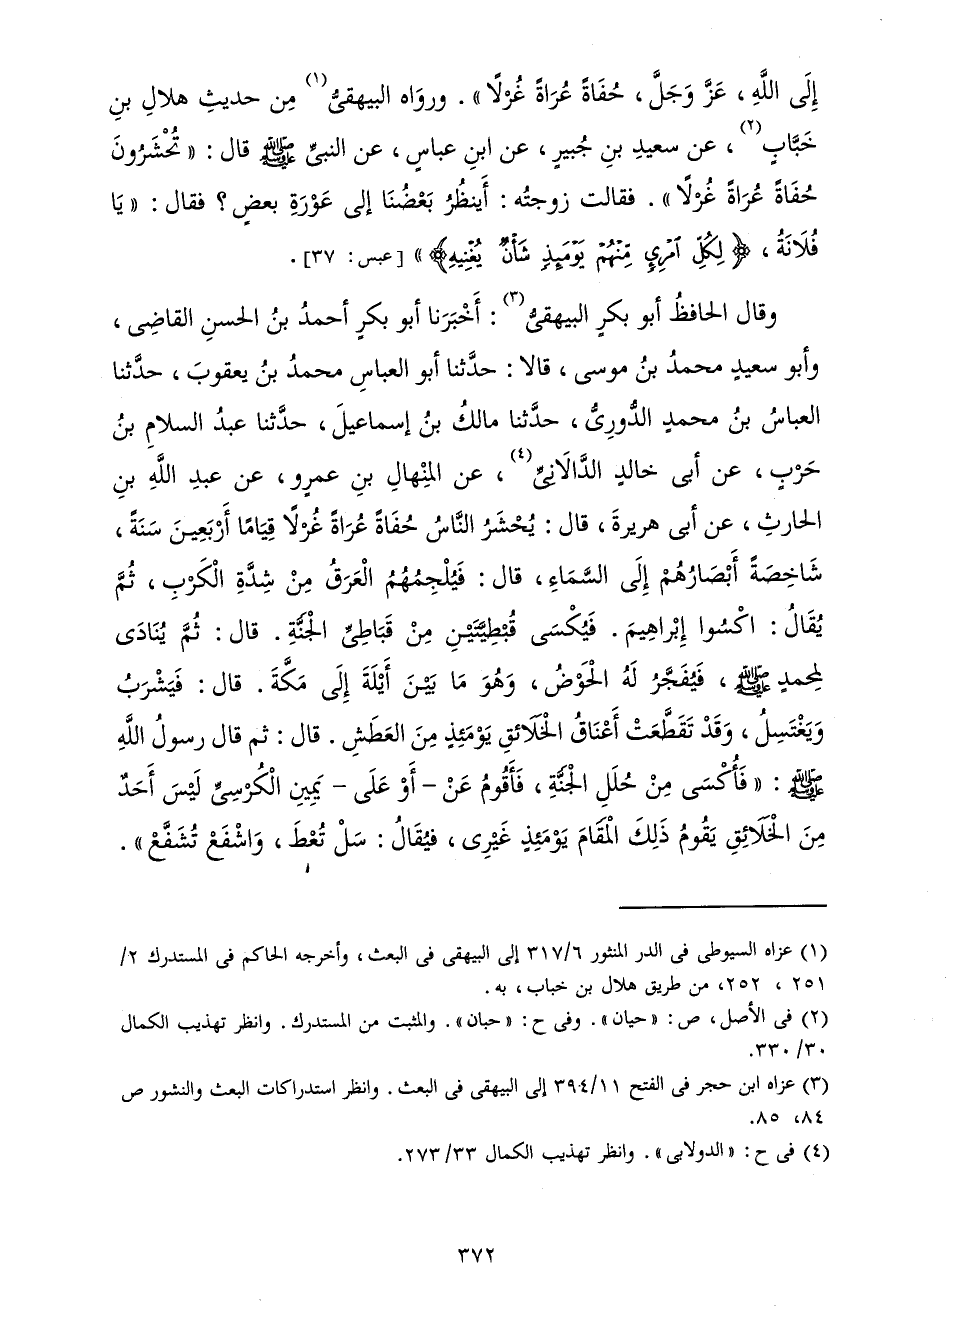 إِلَى اللَّهِ ، عَزَّ وَجَلَّ ، حُفَاةً عُرَاةً غُرْلًا » . وروَاه البيهقىُّ(١) مِن حديثِ هلالِ بنِ
خَبَّابٍ(٢) ، عن سعيدِ بنِ جُبيرٍ ، عن ابنِ عباسٍ ، عن النبىِّ ﷺ قال : « تُحْشَرُونَ
حُفَاةً عُرَاةً غُرْلًا » . فقالت زوجتُه : أَينظُرُ بَعْضُنَا إلى عَوْرَةِ بعضٍ ؟ فقال : « يَا
فُلَانَةُ ، ﴿ لِكُلِّ ٱمْرِيٕ مِّنْهُمْ يَوْمَئِذٍ شَأْنٌ يُغْنِيهِ﴾ » [عبس: ٣٧] .
وقال الحافظُ أبو بكرٍ البيهقىُّ(٣) : أَخْبَرَنا أبو بكرٍ أحمدُ بنُ الحسنِ القاضِى ،
وأبو سعيدٍ محمدُ بنُ موسى ، قالا : حدَّثنا أبو العباسِ محمدُ بنُ يعقوبَ ، حدَّثنا
العباسُ بنُ محمدٍ الدُّورِىُّ ، حدَّثنا مالكُ بنُ إسماعيلَ ، حدَّثنا عبدُ السلامِ بنُ
حَرْبٍ ، عن أبى خالدٍ الدَّالَانِىِّ(٤) ، عن المِنْهالِ بنِ عمرٍو ، عن عبدِ اللَّهِ بنِ
الحارثِ ، عن أبى هريرةَ ، قال : يُحْشَرُ النَّاسُ حُفَاةً عُرَاةً غُرْلًا قِيَامًا أَرْبَعِينَ سَنَةً ،
شَاخِصَةً أَبْصَارُهُمْ إِلَى السَّمَاءِ ، قال : فَيُلْجِمُهُمُ الْعَرَقُ مِنْ شِدَّةِ الْكَرْبِ ، ثُمَّ
يُقَالُ : اكْسُوا إِبْراهِيمَ . فَيُكْسَى قُبْطِيَّتَيْنِ مِنْ قَبَاطِىِّ الجَنَّةِ . قال : ثُمَّ يُنَادَى
لمِحمدٍ ﷺ ، فَيُفَجَّرُ لَهُ الْحَوْضُ ، وَهُوَ مَا بَيْنَ أَيْلَةَ إِلَى مَكَّةَ . قال : فَيَشْرَبُ
وَيَغْتَسِلُ ، وَقَدْ تَقَطَّعَتْ أَعْنَاقُ الْخَلَائقِ يَوْمَئِذٍ مِنَ العَطَشِ . قال : ثم قال رسولُ اللَّهِ
ﷺ : « فَأُكْسَى مِنْ حُلَلِ الْجَنَّةِ ، فَأَقُومُ عَنْ – أَوْ عَلَى – يَمِينِ الْكُرْسِىِّ لَيْسَ أَحَدٌ
مِنَ الْخَلَائقِ يَقُومُ ذَلِكَ الْمَقَامَ يَوْمَئِذٍ غَيْرِى ، فيُقَالُ : سَلْ تُعْطَ ، وَاشْفَعْ تُشَفَّعْ » .
(١) عزاه السيوطى فى الدر المنثور ٣١٧/٦ إلى البيهقى فى البعث ، وأخرجه الحاكم فى المستدرك ٢/
٢٥١ ، ٢٥٢ ، من طريق هلال بن خباب ، به .
(٢) فى الأصل ، ص : « حيان » . وفى ح : « حبان » . والمثبت من المستدرك . وانظر تهذيب الكمال
٣٣٠/٣٠ .
(٣) عزاه ابن حجر فى الفتح ٣٩٤/١١ إلى البيهقى فى البعث . وانظر استدراكات البعث والنشور ص
٨٤، ٨٥ .
(٤) فى ح : « الدولابى » . وانظر تهذيب الكمال ٢٧٣/٣٣ .
٣٧٢